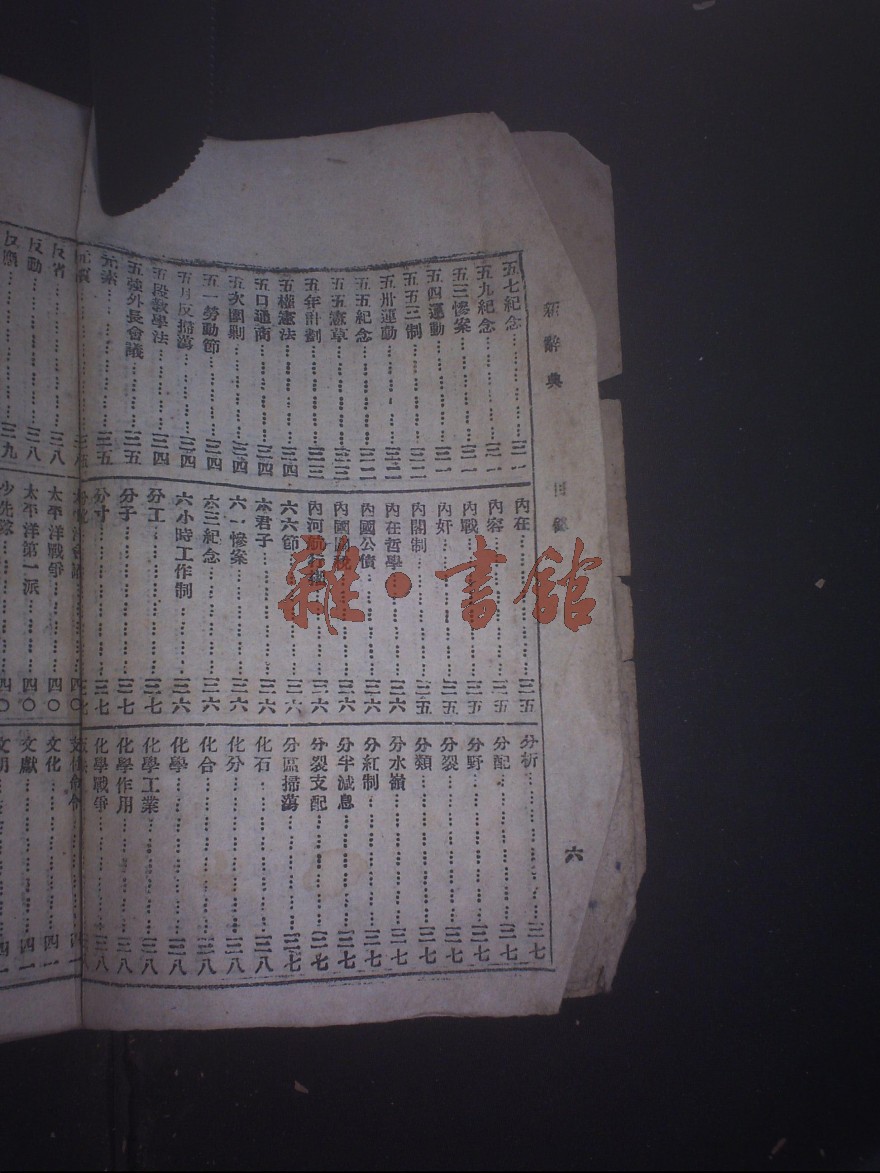 新辭典
目錄
六
五七紀念……三一
五九紀念……三一
五三慘案……三一
五四運動……三一
五五三制……三二
五卅運動……三二
五五紀念……三二
五五憲草……三三
五年計劃……三三
五權憲法……三四
五口通商……三四
五次圍剿……三四
五一勞動節……三四
五月反掃蕩……三四
五段教學法……三四
五強外長會議……三五
元素……三五
內在……三五
內容……三五
內戰……三五
內奸……三五
內閣制……三五
內在哲學……三六
內國公債……三六
內國關稅……三六
內河航行權……三六
六六節……三六
六君子……三六
六一慘案……三六
六三紀念……三六
六小時工作制……三六
分工……三七
分子……三七
分寸……三七
分析……三七
分配……三七
分野……三七
分裂……三七
分類……三七
分水嶺……三七
分紅制……三七
分半減息……三七
分裂支配……三七
分區掃蕩……三七
化石……三八
化分……三八
化合……三八
化學……三八
化學工業……三八
化學作用……三八
化學戰爭……三八
反省……三八
反動……三八
太平洋戰爭……四〇
太平洋第一派……四〇
少先隊……四〇
文化……四一
文獻……四一
文明……四一
雜·書館